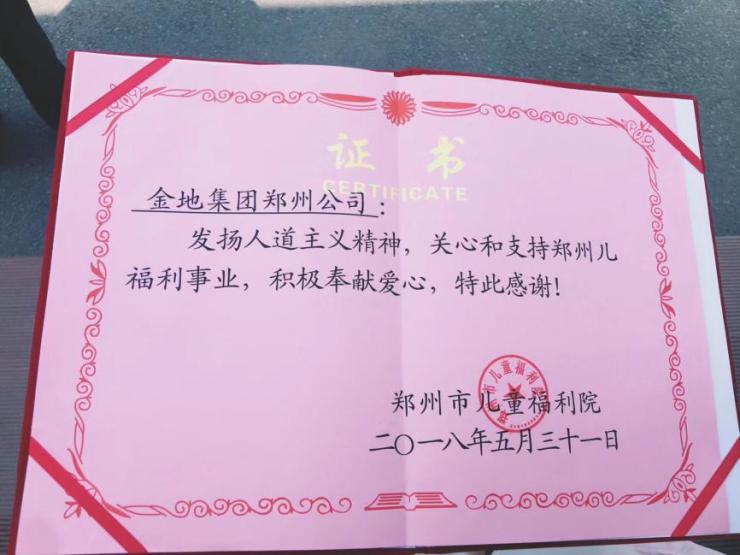 证书
CERTIFICATE
金地集团郑州公司：
发扬人道主义精神，关心和支持郑州儿
福利事业，积极奉献爱心，特此感谢！
郑州市儿童福利院
二〇一八年五月三十一日
郑州市儿童福利院